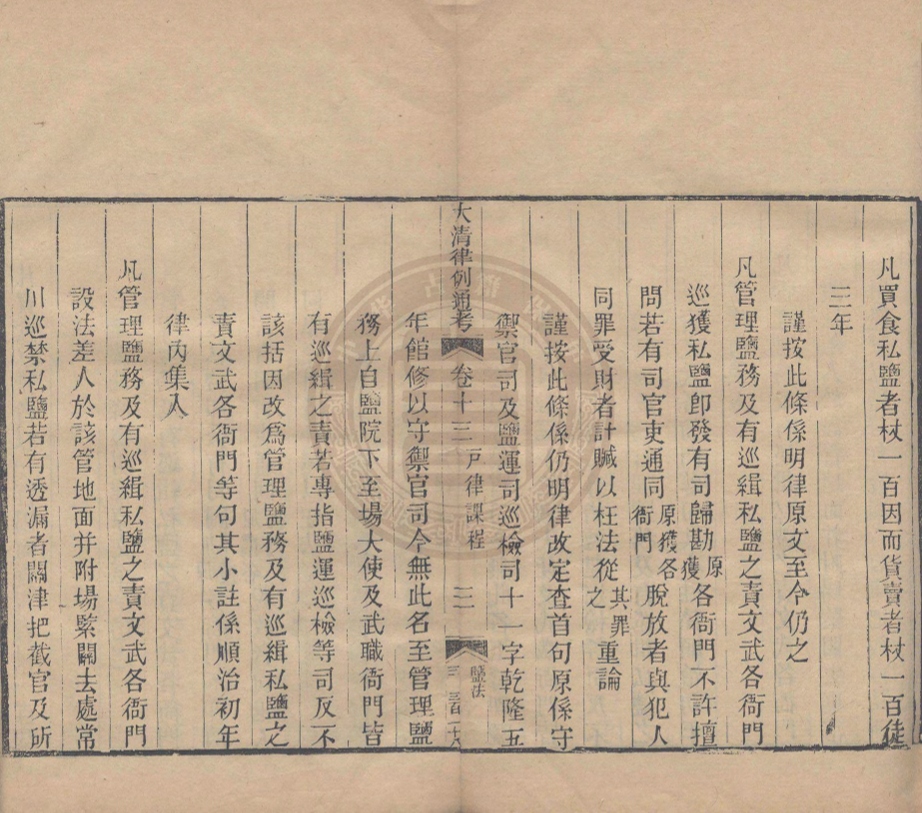 凡買食私鹽者杖一百因而貨賣者杖一百徒
三年
謹按此條係明律原文至今仍之
凡管理鹽務及有巡緝私鹽之責文武各衙門
巡獲私鹽即發有司歸勘原獲各衙門不許擅
問若有司官吏通同原獲各衙門脫放者與犯人
同罪受財者計贓以枉法從其罪之重論
謹按此條係仍明律改定查首句原係守
禦官司及鹽運司巡檢司十一字乾隆五
大清律例通考 卷十三 戶律課程 二 鹽法
年館修以守禦官司今無此名至管理鹽
務上自鹽院下至場大使及武職衙門皆
有巡緝之責若專指鹽運巡檢等司反不
該括因改爲管理鹽務及有巡緝私鹽之
責文武各衙門等句其小註係順治初年
律內集入
凡管理鹽務及有巡緝私鹽之責文武各衙門
設法差人於該管地面并附場緊關去處常
川巡禁私鹽若有透漏者關津把截官及所